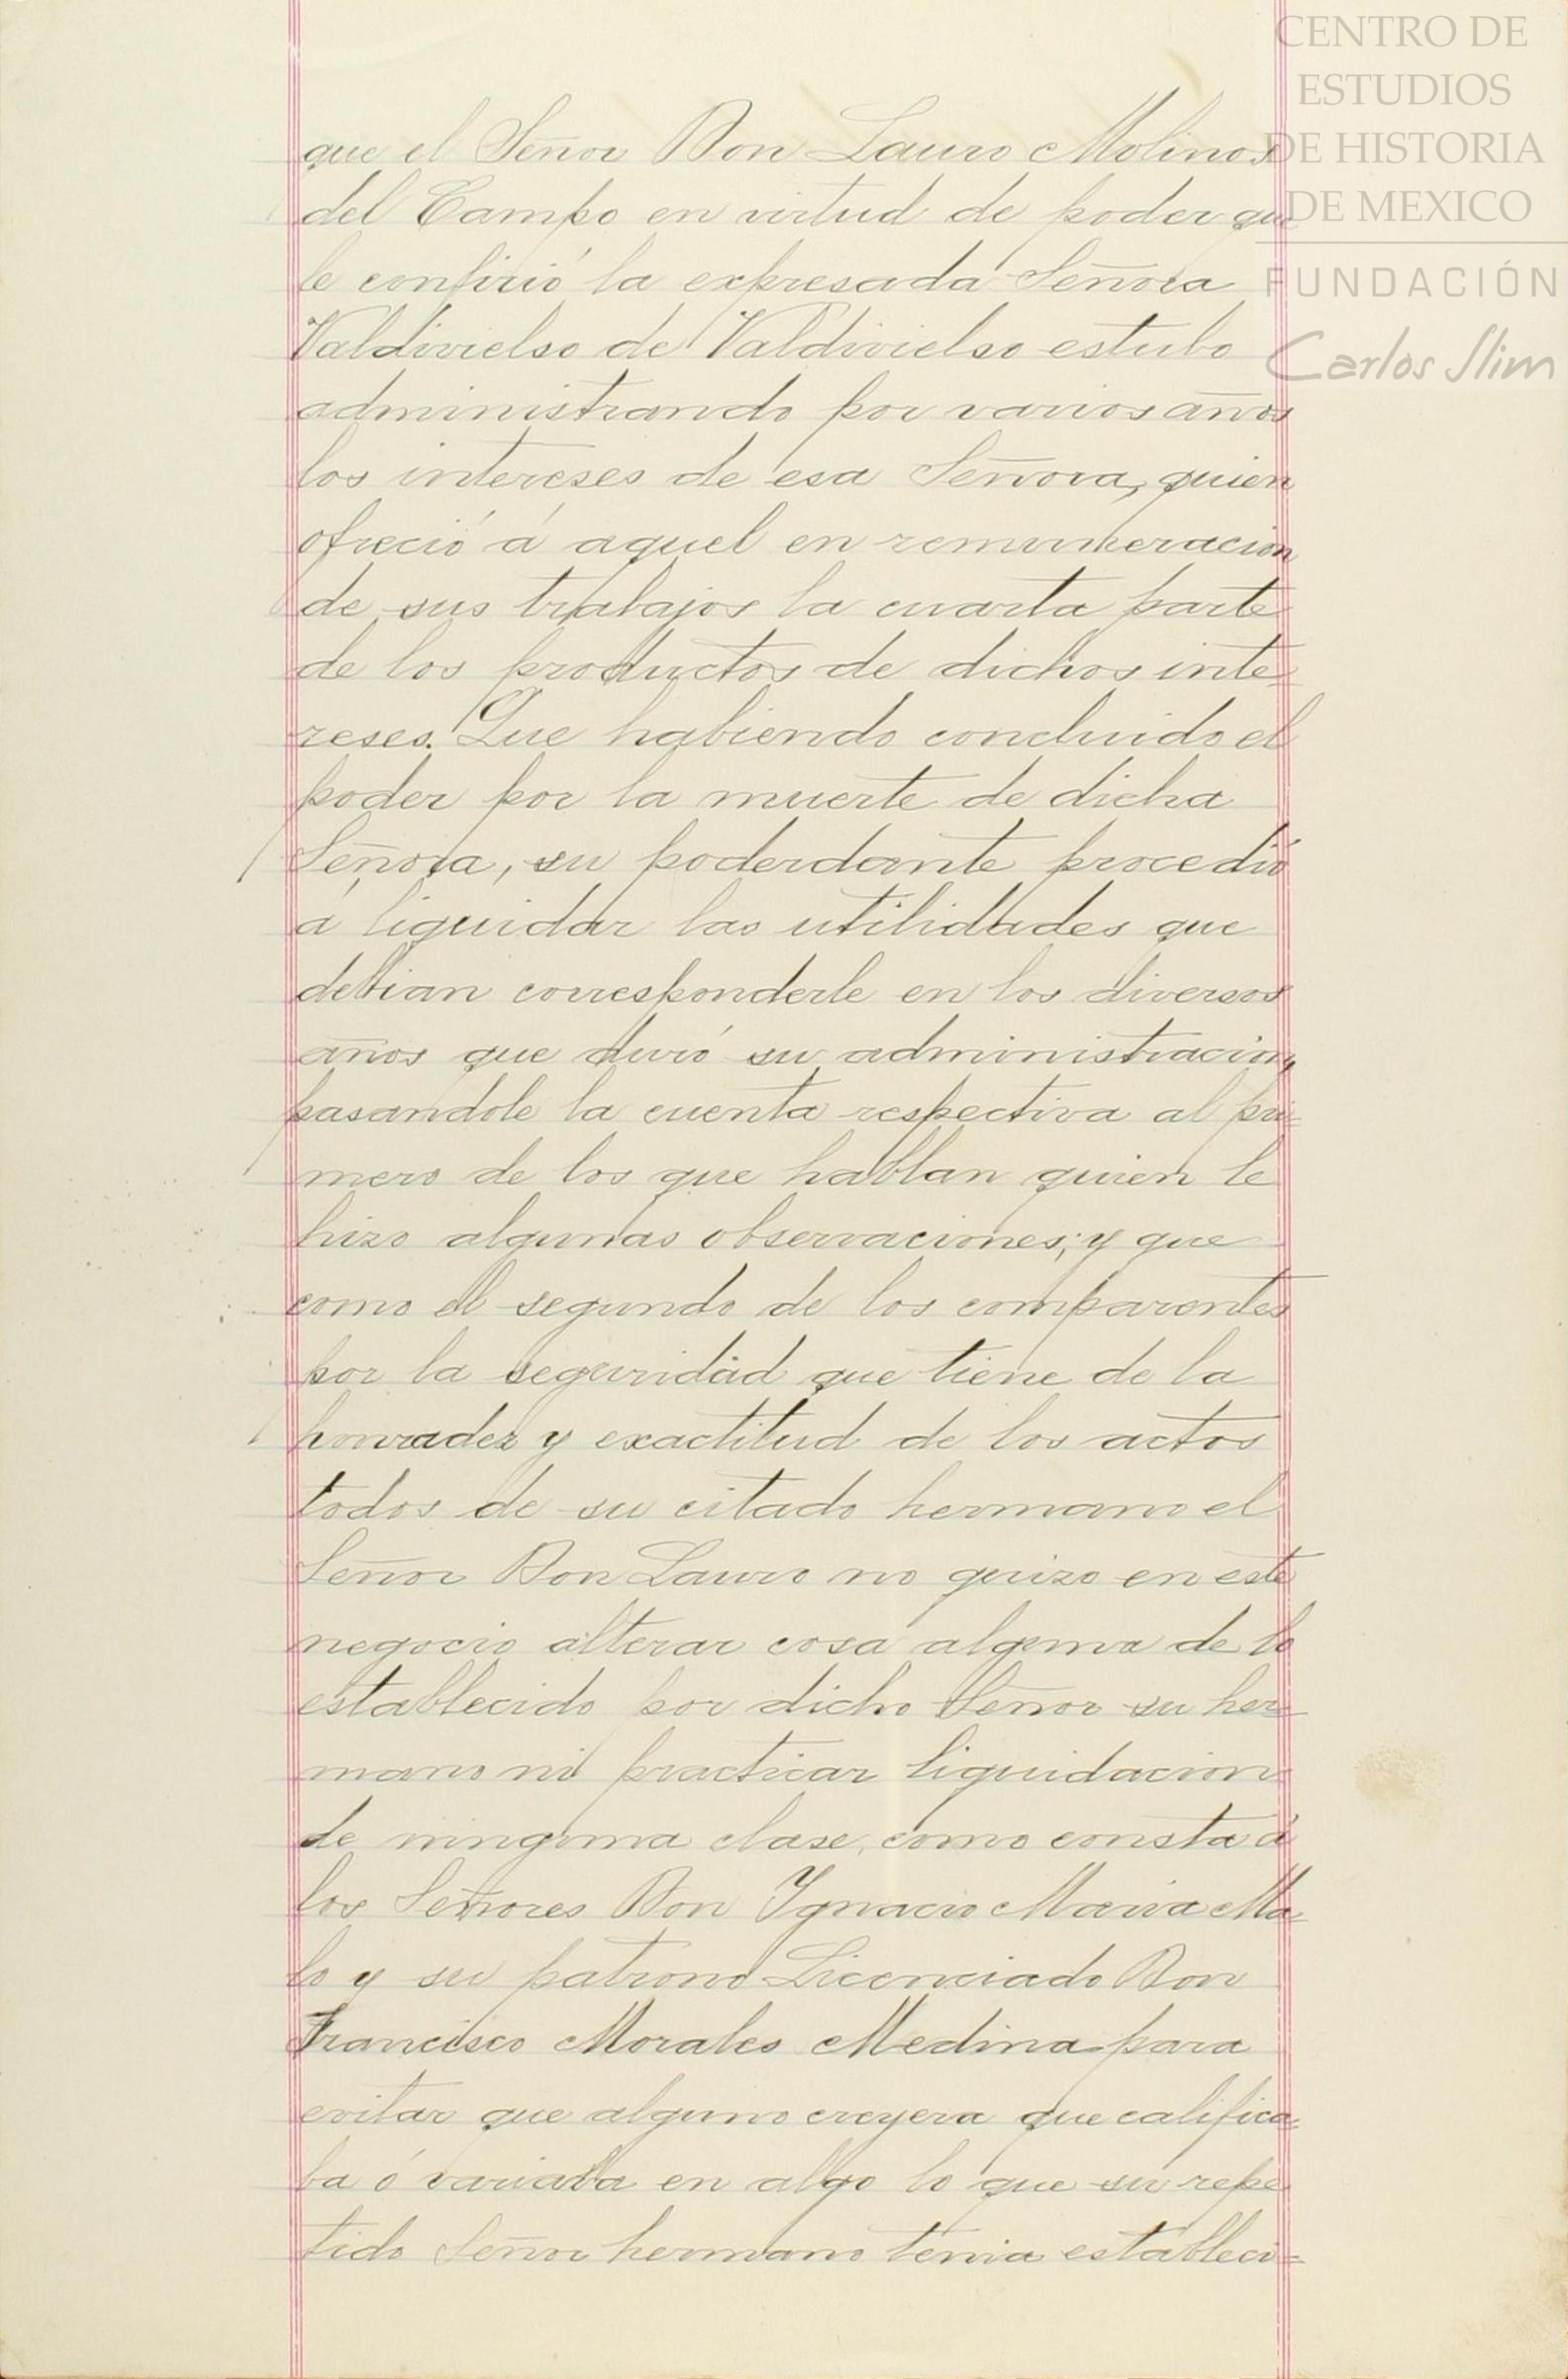 CENTRO DE
ESTUDIOS
DE HISTORIA
DE MEXICO
FUNDACIÓN
Carlos Slim
que el Señor Don Lauro Molinos
del Campo en virtud de poder que
le confirió la expresada Señora
Valdivielso de Valdivielso estubo
administrando por varios años
los intereses de esa Señora, quien
ofreció á aquel en remuneracion
de sus trabajos la cuarta parte
de los productos de dichos inte=
reses. Que habiendo concluido el
poder por la muerte de dicha
Señora, su poderdante procedió
á liquidar las utilidades que
debian corresponderle en los diversos
años que duró su administracion,
pasandole la cuenta respectiva al pri=
mero de los que hablan quien le
hizo algunas observaciones; y que
como el segundo de los comparentes
por la seguridad que tiene de la
honradez y exactitud de los actos
todos de su citado hermano el
Señor Don Lauro no quizo en este
negocio alterar cosa alguna de lo
establecido por dicho Señor su her=
mano ni practicar liquidacion
de ninguna clase, como consta á
los Señores Don Ygnacio Maria Ma=
lo y su patrono Licenciado Don
Francisco Morales Medina para
evitar que alguno creyera que califica=
ba ó variaba en algo lo que su repe
tido Señor hermano tenia estableci=